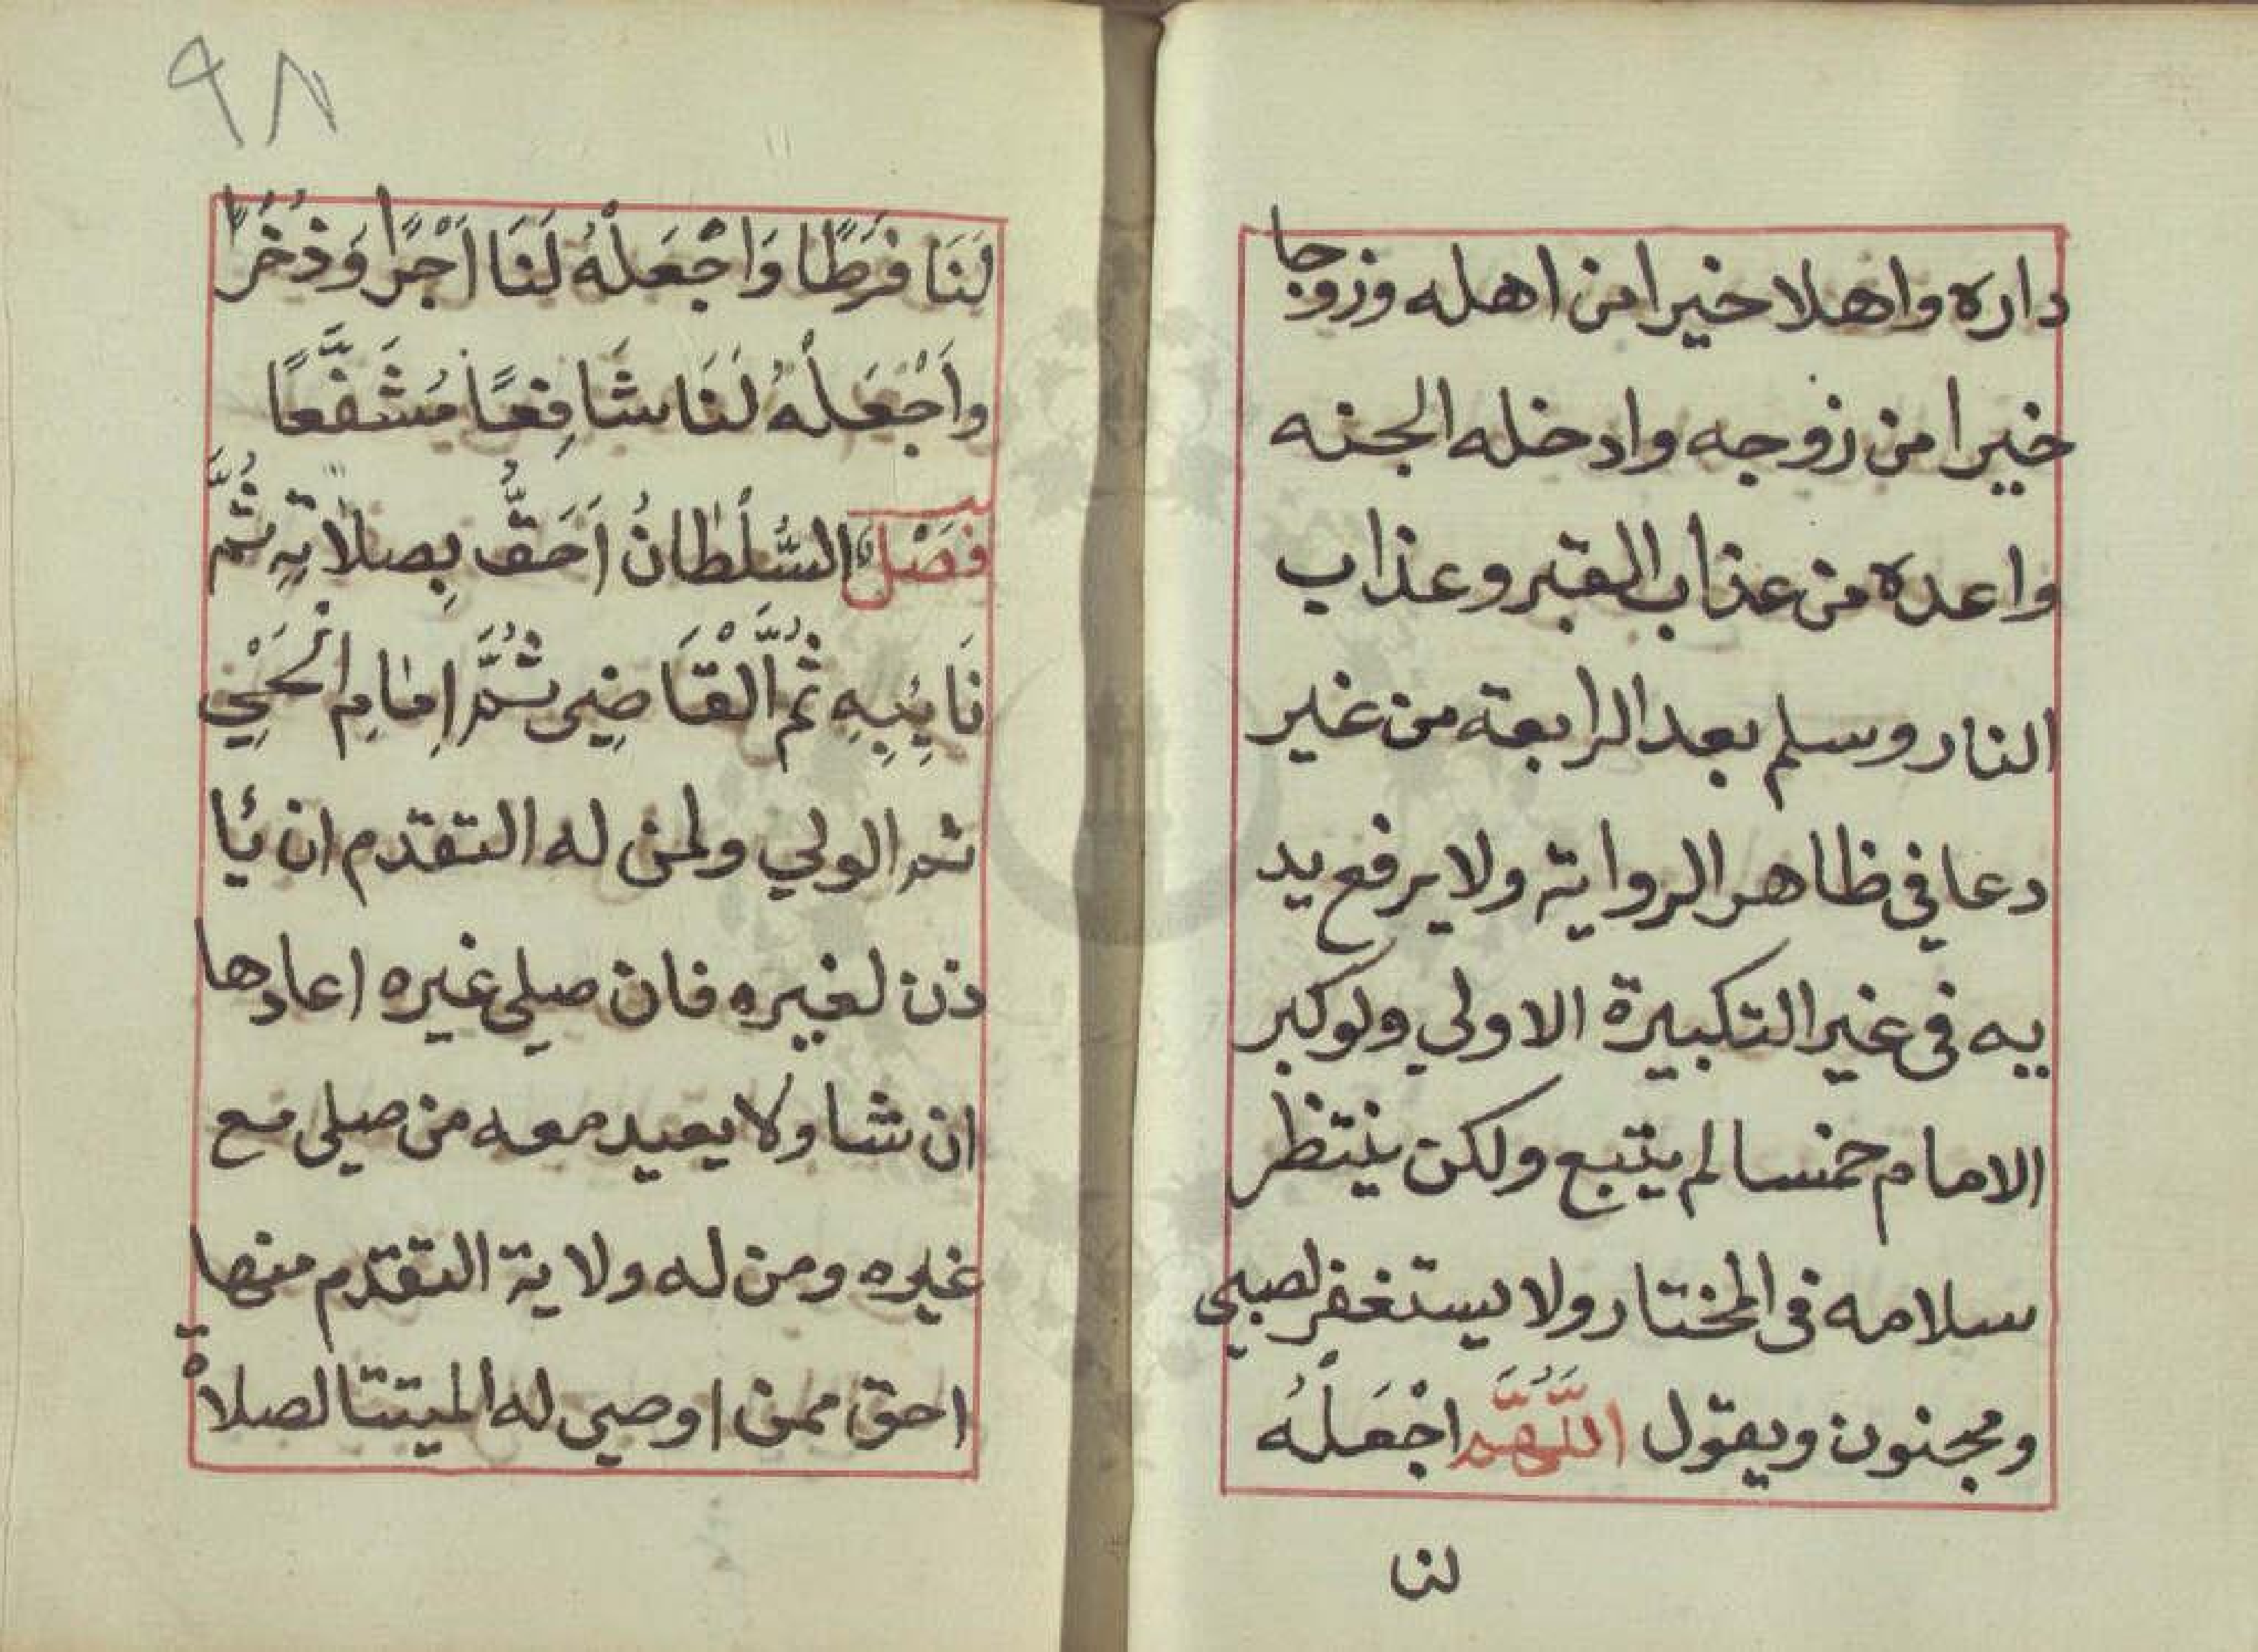 داره واهلا خيرا من اهله وزوجا
خيرا من زوجه وادخله الجنه
واعده من عذاب القبر وعذاب
النار وسلم بعد الرابعة من غير
دعا في ظاهر الرواية ولا يرفع يد
يه في غير التكبيرة الاولي ولو كبر
الامام خمسا لم يتبع ولكن ينتظر
سلامه في المختار ولا يستغفر لصبي
ومجنون ويقول اللَّهُمَّ اجْعَلْهُ
لنا
٩٨
لَنَا فَرَطًا وَاجْعَلْهُ لَنَا اَجْرًا وَذُخْرًا
وَاجْعَلْهُ لَنَا شَافِعًا مُشَفَّعًا
فَصْلٌ السُّلْطَانُ اَحَقُّ بِصلاتِهِ ثُمَّ
نَائِبِهِ ثُمَّ الْقَاضِي ثُمَّ اِمَامِ الْحَيِّ
ثم الولي ولمن له التقدم ان ئا
ذن لغيره فان صلي غيره اعادها
ان شا ولا يعيد معه من صلي مع
غيره ومن له ولاية التقدم منها
احق ممن اوصي له الميتتا لصلاة